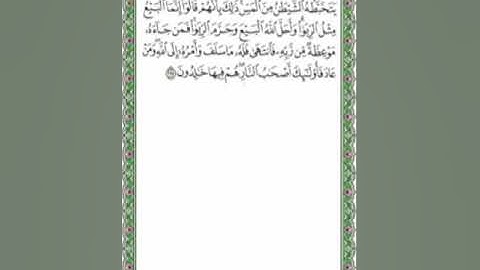 يَتَخَبَّطُهُ الشَّيْطَٰنُ مِنَ الْمَسِّ ذَٰلِكَ بِأَنَّهُمْ قَالُوٓا۟ إِنَّمَا الْبَيْعُ
مِثْلُ الرِّبَوٰا۟ وَأَحَلَّ اللَّهُ الْبَيْعَ وَحَرَّمَ الرِّبَوٰا۟ فَمَن جَآءَهُۥ
مَوْعِظَةٌ مِّن رَّبِّهِۦ فَٱنتَهَىٰ فَلَهُۥ مَا سَلَفَ وَأَمْرُهُۥٓ إِلَى اللَّهِ وَمَنْ
عَادَ فَأُو۟لَٰٓئِكَ أَصْحَٰبُ النَّارِ هُمْ فِيهَا خَٰلِدُونَ